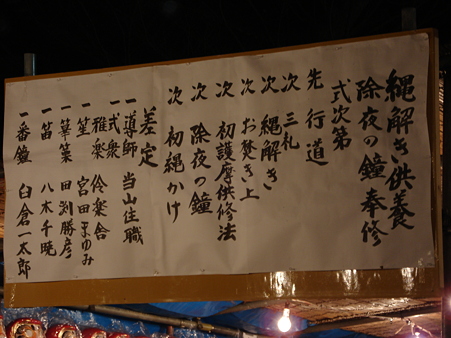 縄解き供養
除夜の鐘奉修
式次第
先 行道
次 三札
次 縄解き
次 お焚き上
次 初護摩供修法
次 除夜の鐘
次 初縄かけ
差定
一導師 当山住職
一式衆
一雅楽 伶楽舎
一笙 宮田まゆみ
一篳篥 田渕勝彦
一笛 八木千暁
一番鐘 臼倉一太郎